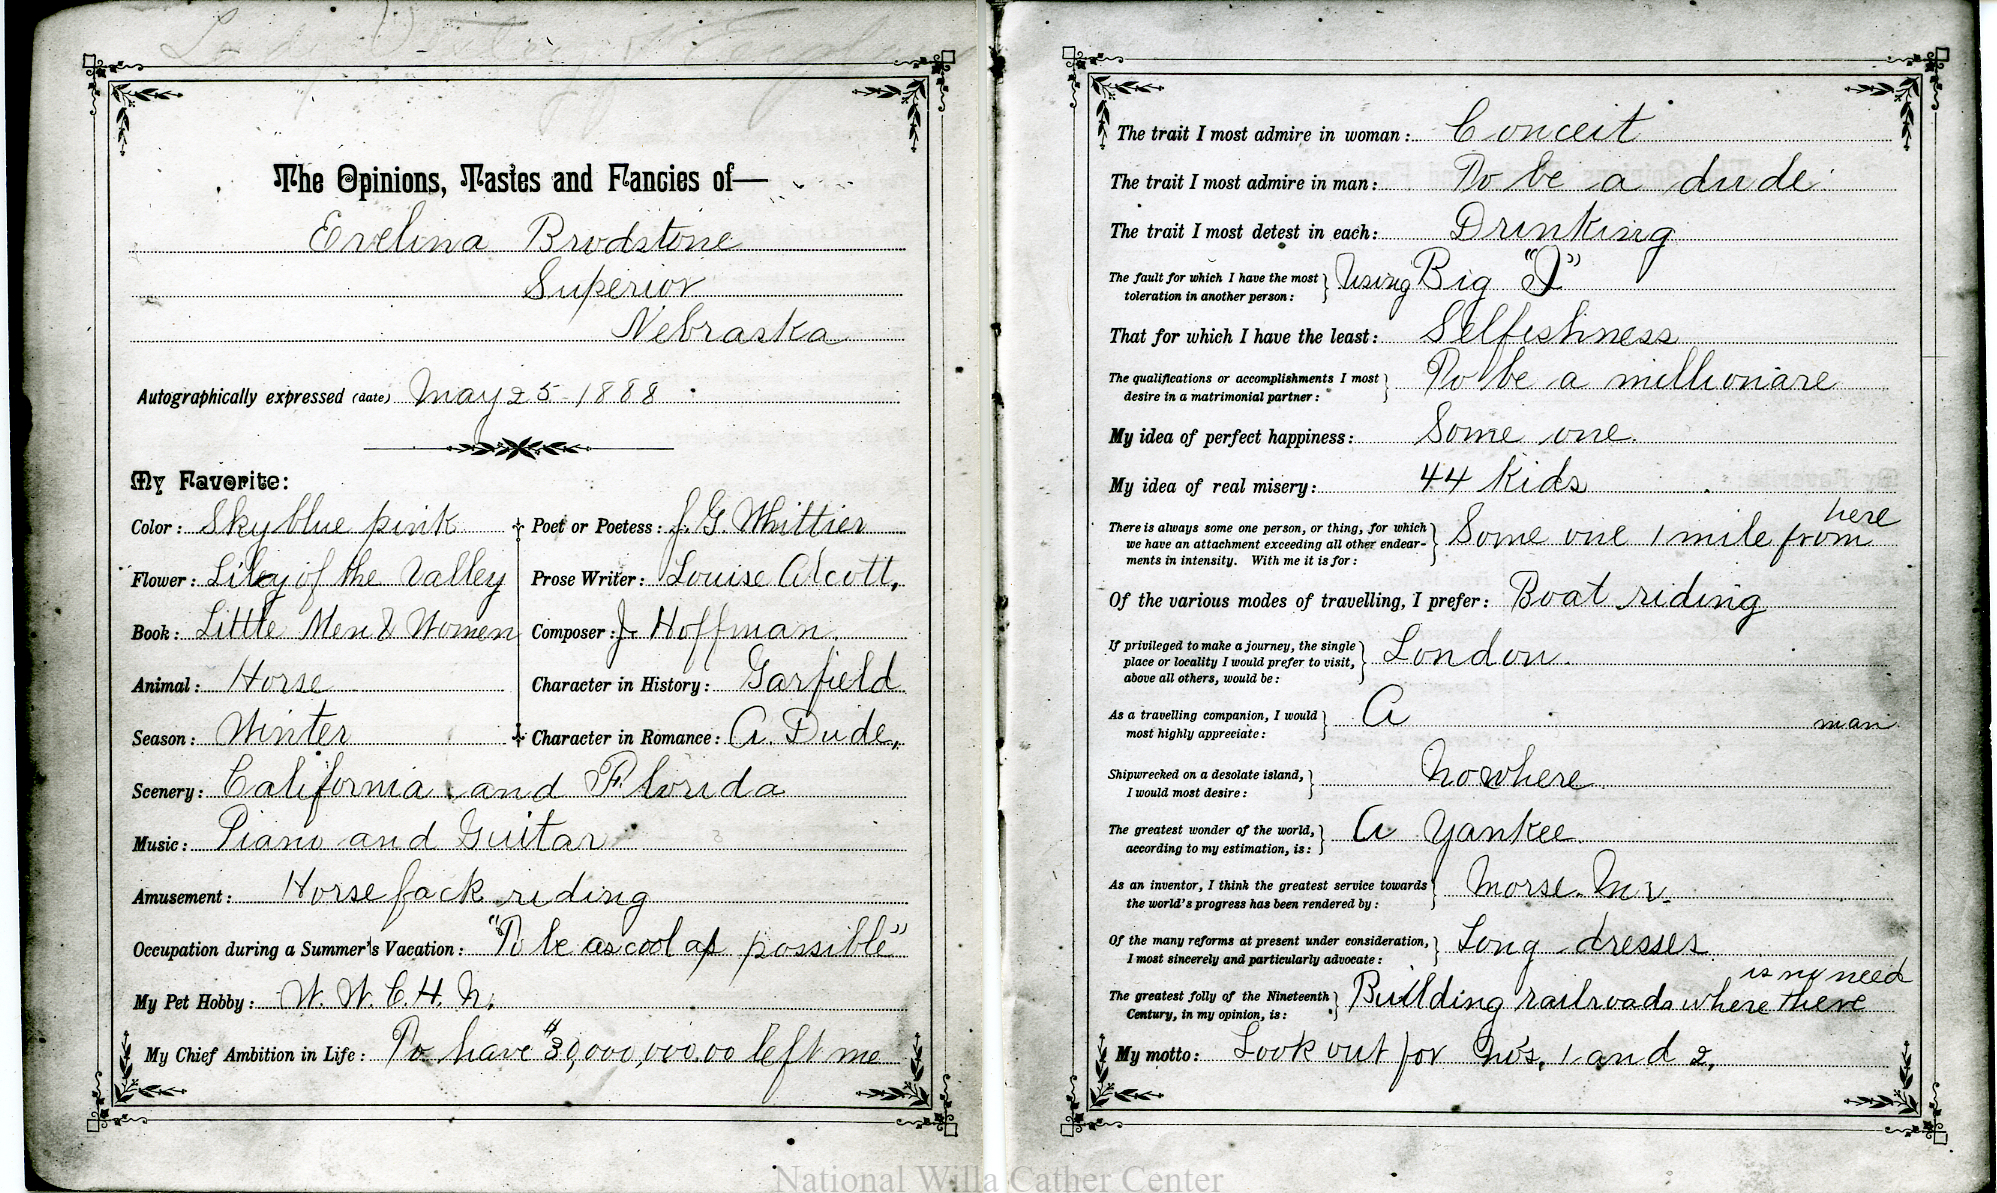 The Opinions, Tastes and Fancies of—
Evelina Brodstone
Superior
Nebraska
Autographically expressed (date) May 25-1888
My Favorite:
Color: Sky blue pink
Flower: Liley of the Valley
Book: Little Men & Women
Animal: Horse
Season: Winter
Poet or Poetess: J. G. Whittier
Prose Writer: Louise Alcott,
Composer: J. Hoffman.
Character in History: Garfield
Character in Romance: A. Dude,
Scenery: California and Florida
Music: Piano and Guitar
Amusement: Horse back riding
Occupation during a Summer's Vacation: "To be as cool as possible"
My Pet Hobby: W. W. C. H. N.
My Chief Ambition in Life: To have $30,000,000.00 left me
The trait I most admire in woman: Conceit
The trait I most admire in man: To be a dude
The trait I most detest in each: Drinking
The fault for which I have the most
toleration in another person: Using Big "I"
That for which I have the least: Selfishness
The qualifications or accomplishments I most
desire in a matrimonial partner: To be a millionare
My idea of perfect happiness: Some one.
My idea of real misery: 44 Kids
There is always some one person, or thing, for which
we have an attachment exceeding all other endear-
ments in intensity. With me it is for: Some one 1 mile from here
Of the various modes of travelling, I prefer: Boat riding
If privileged to make a journey, the single
place or locality I would prefer to visit,
above all others, would be: London.
As a travelling companion, I would
most highly appreciate: A man
Shipwrecked on a desolate island,
I would most desire: Nowhere
The greatest wonder of the world,
according to my estimation, is: A Yankee.
As an inventor, I think the greatest service towards
the world's progress has been rendered by: Morse. Mr.
Of the many reforms at present under consideration,
I most sincerely and particularly advocate: Long dresses
The greatest folly of the Nineteenth
Century, in my opinion, is: Building railroads where there is no need
My motto: Look out for No's, 1 and 2,
National Willa Cather Center